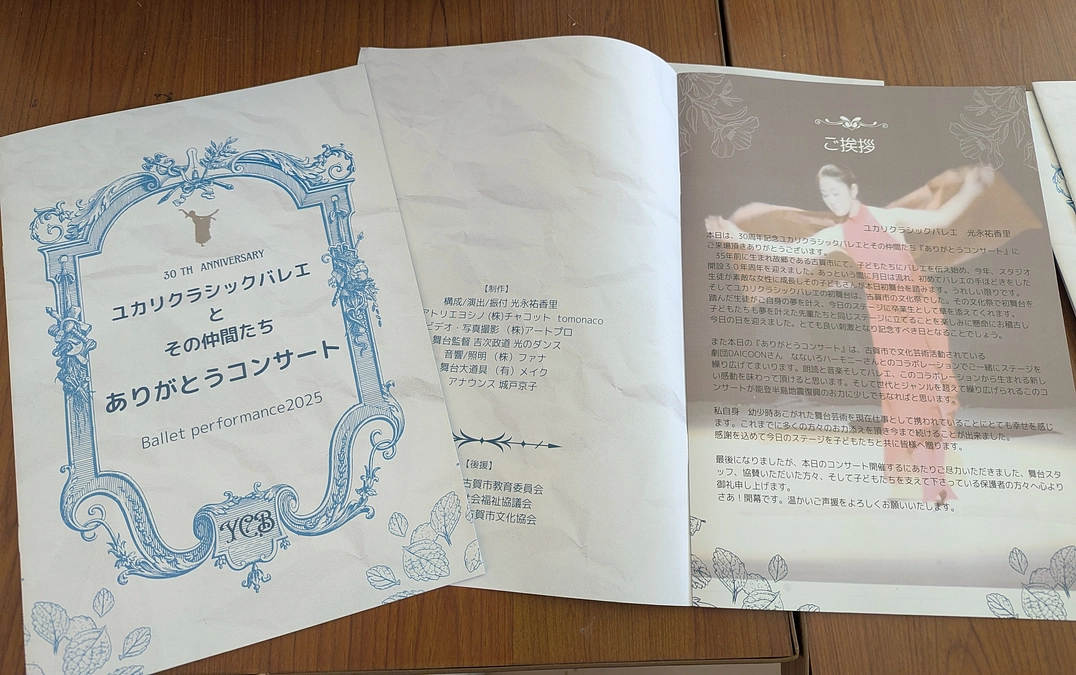 30 TH ANNIVERSARY
ユカリクラシックバレエ
と
その仲間たち
ありがとうコンサート
Ballet performance2025
YCB
【制作】
構成/演出/振付 光永祐香里
アトリエヨシノ (株)チャコット tomonaco
ビデオ・写真撮影 (株)アートプロ
舞台監督 吉次政道 光のダンス
音響/照明 (株) ファナ
舞台大道具 (有) メイク
アナウンス 城戸京子
【後援】
古賀市教育委員会
会福祉協議会
古賀市文化協会
ご挨拶
ユカリクラシックバレエ 光永祐香里
本日は、30周年記念ユカリクラシックバレエとその仲間たち『ありがとうコンサート』に
ご来場頂きありがとうございます。
35年前に生まれ故郷である古賀市にて、子どもたちにバレエを伝え始め、今年、スタジオ
開設30年周年を迎えました。あっという間に月日は流れ、初めてバレエの手ほどきをした
生徒が素敵な女性に成長しその子どもさんが本日初舞台を踏みます。うれしい限りです。
そしてユカリクラシックバレエの初舞台は、古賀市の文化祭でした。その文化祭で初舞台を
踏んだ生徒がご自身の夢を叶え、今日のステージに卒業生として華を添えてくれます。
子どもたちも夢を叶えた先輩たちと同じステージに立てることを楽しみに懸命にお稽古し
今日の日を迎えました。とても良い刺激となり記念すべき日となることでしょう。
また本日の『ありがとうコンサート』は、古賀市で文化芸術活動されている
劇団DAICOONさん なないろハーモニーさんとのコラボレーションでご一緒にステージを
繰り広げてまいります。朗読と音楽そしてバレエ、このコラボレーションから生まれる新し
い感動を味わって頂けると思います。そして世代とジャンルを超えて繰り広げられるこのコ
ンサートが能登半島地震復興のお力に少しでもなればと思います。
私自身 幼少時あこがれた舞台芸術を現在仕事として携われていることにとても幸せを感じ
ます。これまでに多くの方々のお力添えを頂き今まで続けることが出来ました。
感謝を込めて今日のステージを子どもたちと共に皆様へ贈ります。
最後になりましたが、本日のコンサート開催するにあたりご尽力いただきました、舞台スタ
ッフ、協賛いただいた方々、そして子どもたちを支えて下さっている保護者の方々へ心より
御礼申し上げます。
さあ！開幕です。温かいご声援をよろしくお願いいたします。